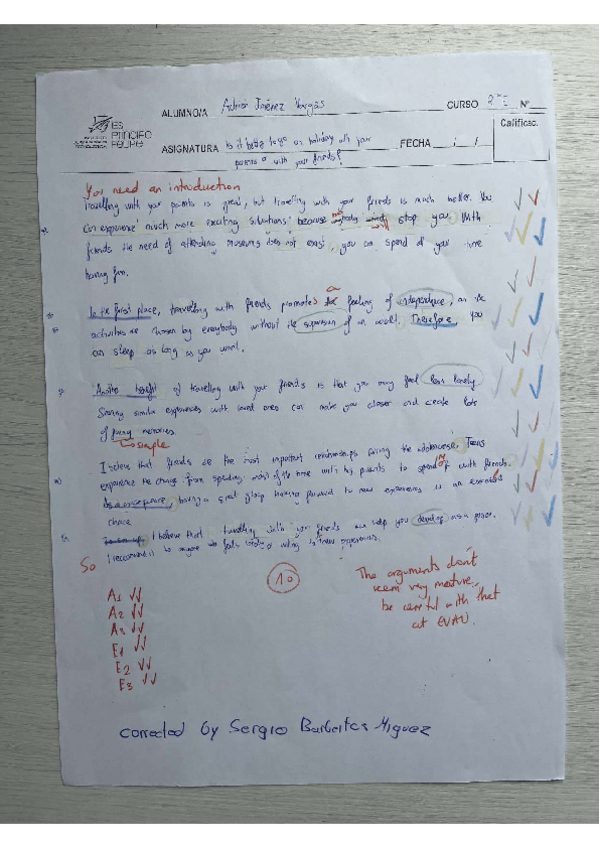 ALUMNO/A Adrián Jiménez Vargas CURSO 2º Nº
IES PRÍNCIPE FELIPE
Calificac.
ASIGNATURA Is it better to go on holiday with your FECHA / /
parents or with your friends?
You need an introduction
Travelling with your parents is great, but travelling with your friends is much better. You
can experience much more exciting situations because stop you. With
friends the need of attending museums does not exist, you can spend all your time
having fun.
In the first place, travelling with friends promotes a feeling of independence, as the
activities are chosen by everybody without the supervision of an adult. Therefore, you
can sleep as long as you want.
Another benefit of travelling with your friends is that you may feel less lonely.
Sharing similar experiences with loved ones can make you closer and create lots
of funny memories.
example
I believe that friends are the most important relationships during the adolescence. Teens
experience the change from spending most of the time with his parents to spend it with friends.
As a consequence, having a great group looking forward to new experiences is an
choice
I believe that travelling with your friends can help you develop as a person.
I recommend it to anyone feels willing to new experiences.
So
10
The arguments don't
seem very mature,
be careful with that
at EVAU.
A1 ✓✓
A2 ✓✓
A3 ✓✓
E1 ✓✓
E2 ✓✓
E3 ✓✓
corrected by Sergio Barberías Miguez